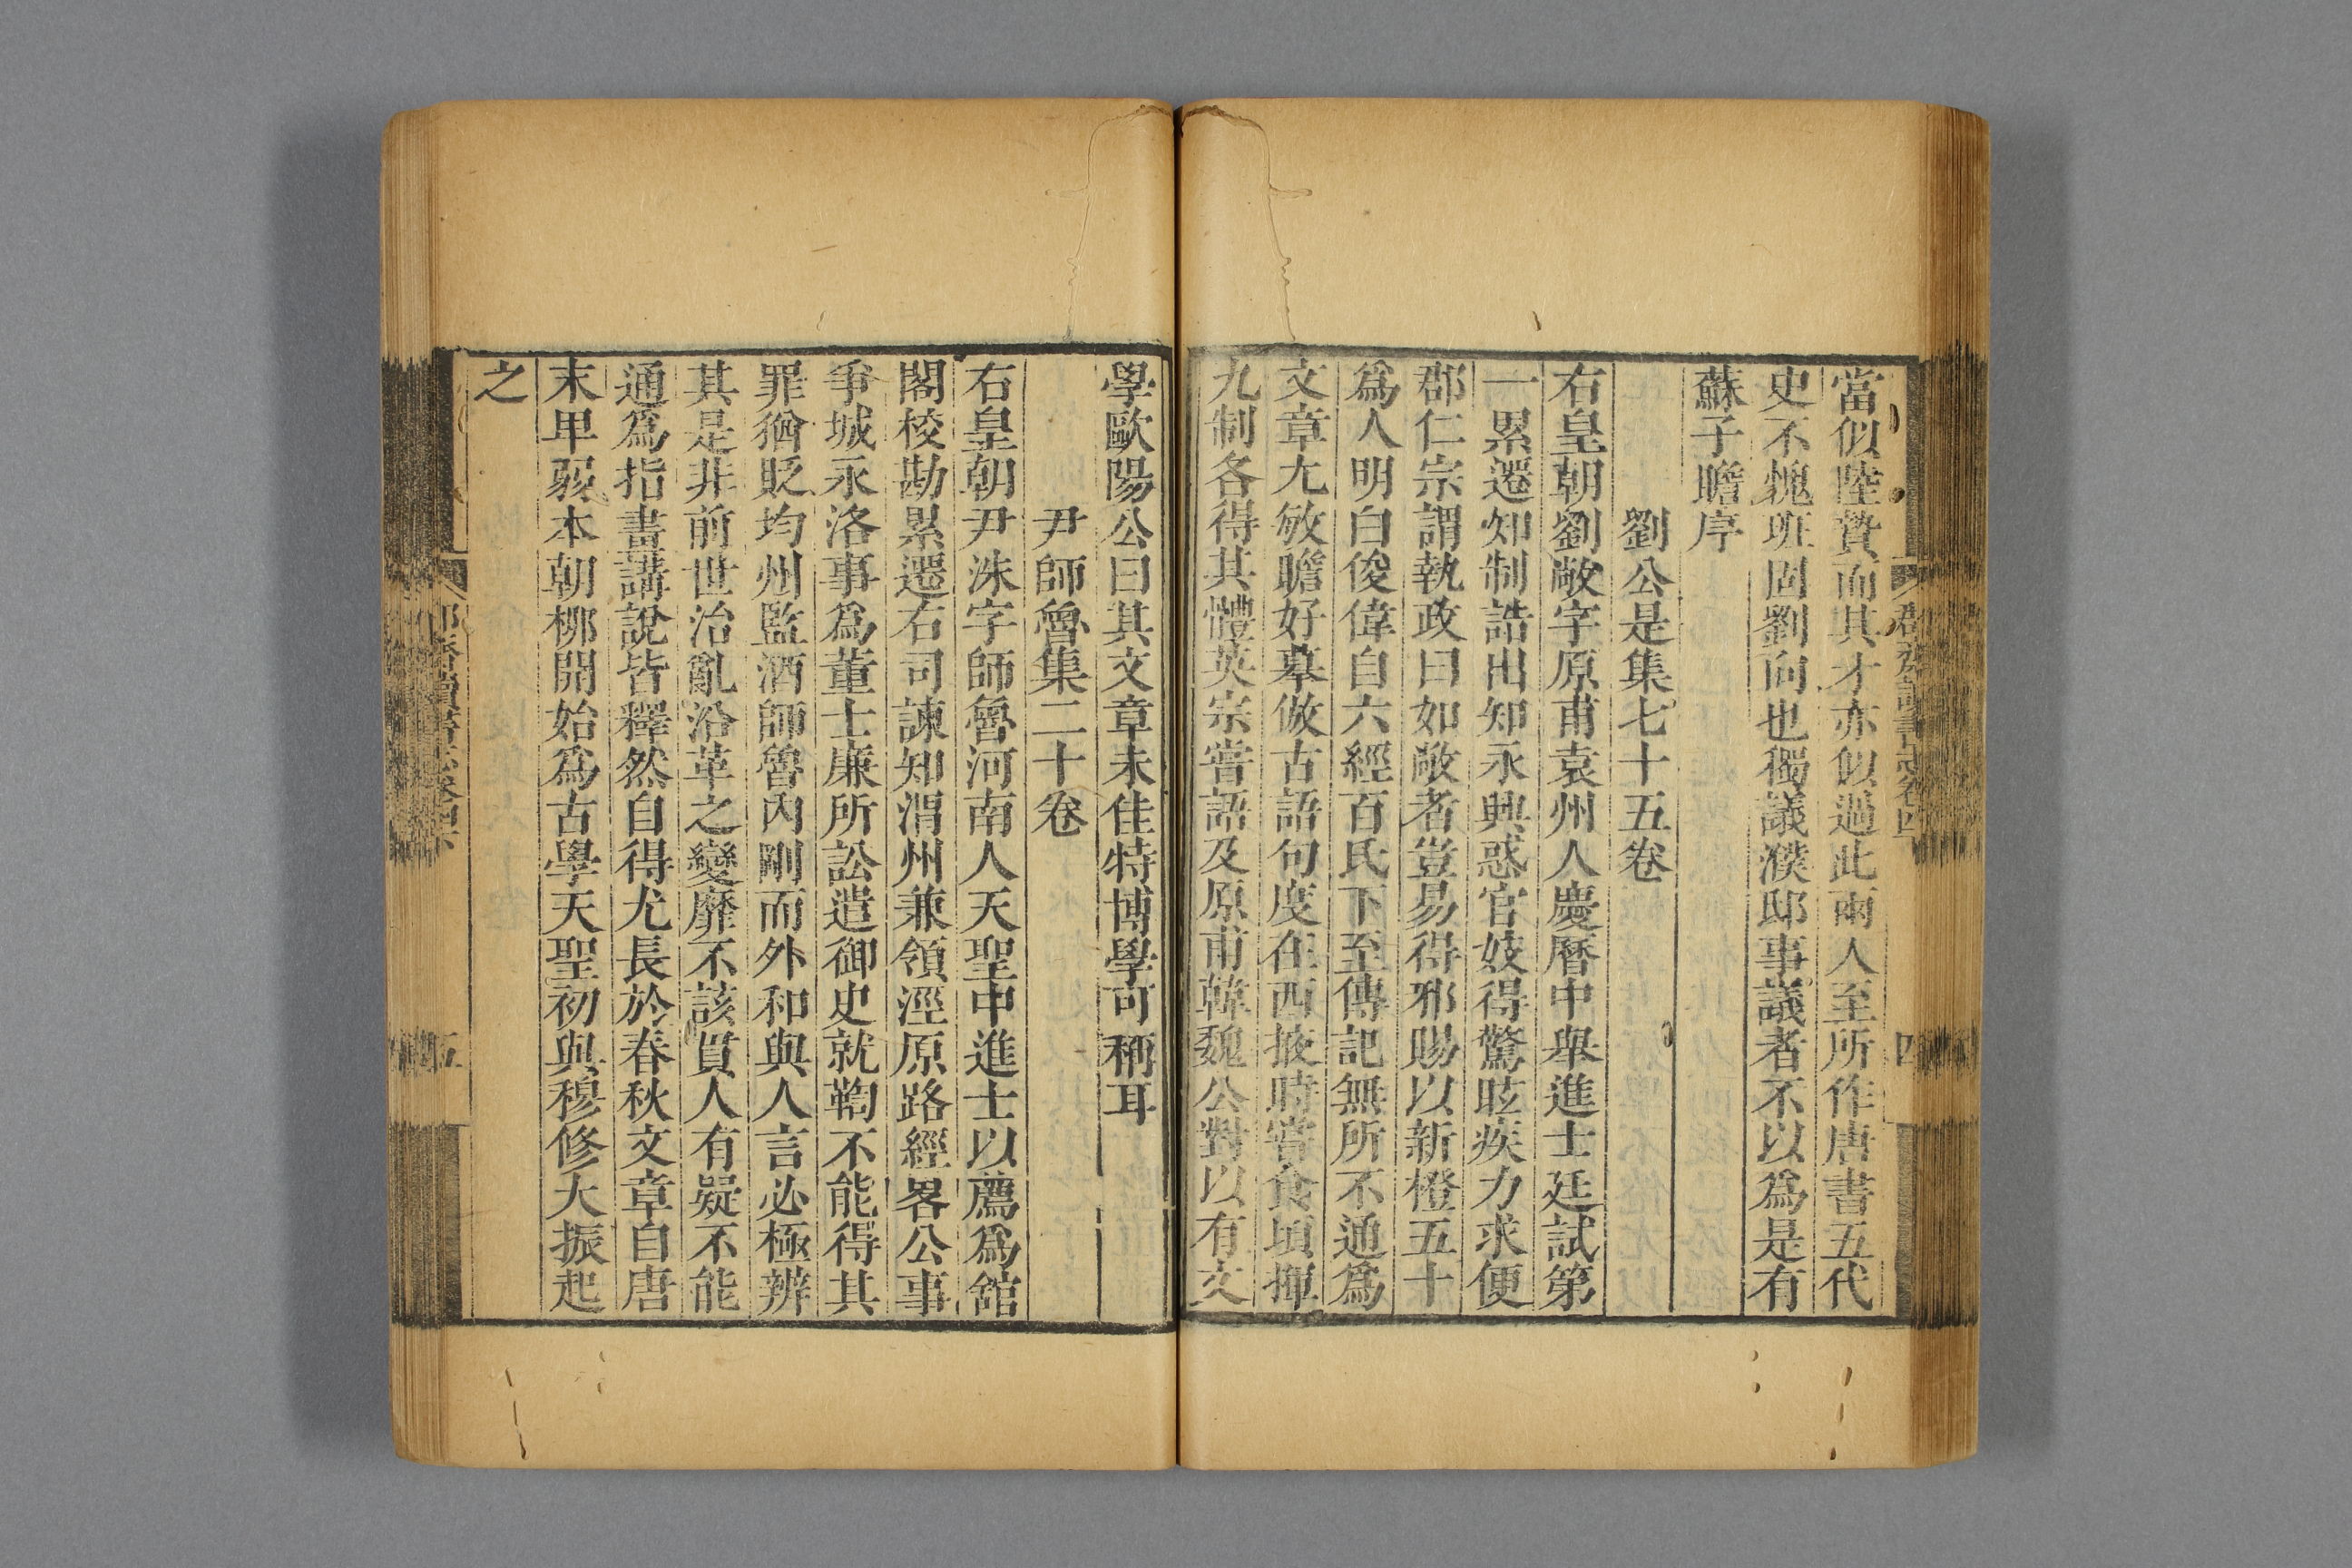 當似陸贄而其才亦似過此兩人至所作唐書五代
史不愧班固劉向也獨議濮邸事議者不以爲是有
蘇子瞻序
劉公是集七十五卷
右皇朝劉敞字原甫袁州人慶曆中舉進士廷試第
一累遷知制誥出知永興惑官妓得驚眩疾力求便
郡仁宗謂執政曰如敞者豈易得邪賜以新橙五十
爲人明白俊偉自六經百氏下至傳記無所不通爲
文章尤敏贍好摹倣古語句度在西掖時嘗食頃揮
九制各得其體英宗嘗語及原甫韓魏公對以有文
學歐陽公曰其文章未佳特博學可稱耳
尹師魯集二十卷
右皇朝尹洙字師魯河南人天聖中進士以薦爲舘
閣校勘累遷右司諫知渭州兼領涇原路經畧公事
爭城永洛事爲董士廉所訟遣御史就鞫不能得其
罪猶貶均州監酒師魯內剛而外和與人言必極辨
其是非前世治亂沿革之變靡不該貫人有疑不能
通爲指畫講說皆釋然自得尤長於春秋文章自唐
末卑弱本朝柳開始爲古學天聖初與穆修大振起
之
四
五